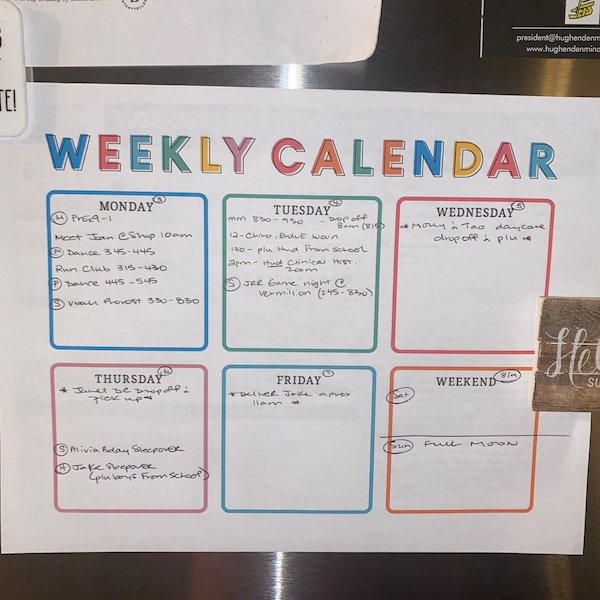 TE!
president@hughendenmino
www.hughendenmino
WEEKLY CALENDAR
MONDAY 3
M Prek 9-1
Meet Jean @ Shop 10am
M Dance 345-445
Run Club 315-430
P Dance 445-545
S Vball Provost 330-830
TUESDAY 4
mm 830-930 - Drop off
8am (815)
12-Chiro,
130- plu Hud From School
2pm- Hud Clinical Hist.
Zoom
S JRR Game night @
Vermilion (245-830)
WEDNESDAY 5
* Molly & Tao daycare
drop off & plu *
THURSDAY 6
* Janet DC Drop off &
Pick up *
S Alivia Bday Sleepover
H Jake Sleepover
(plu boys From School)
FRIDAY 7
* Deliver Jake
11am *
WEEKEND 8/9
Sat
Sun Full Moon
Hel
SU